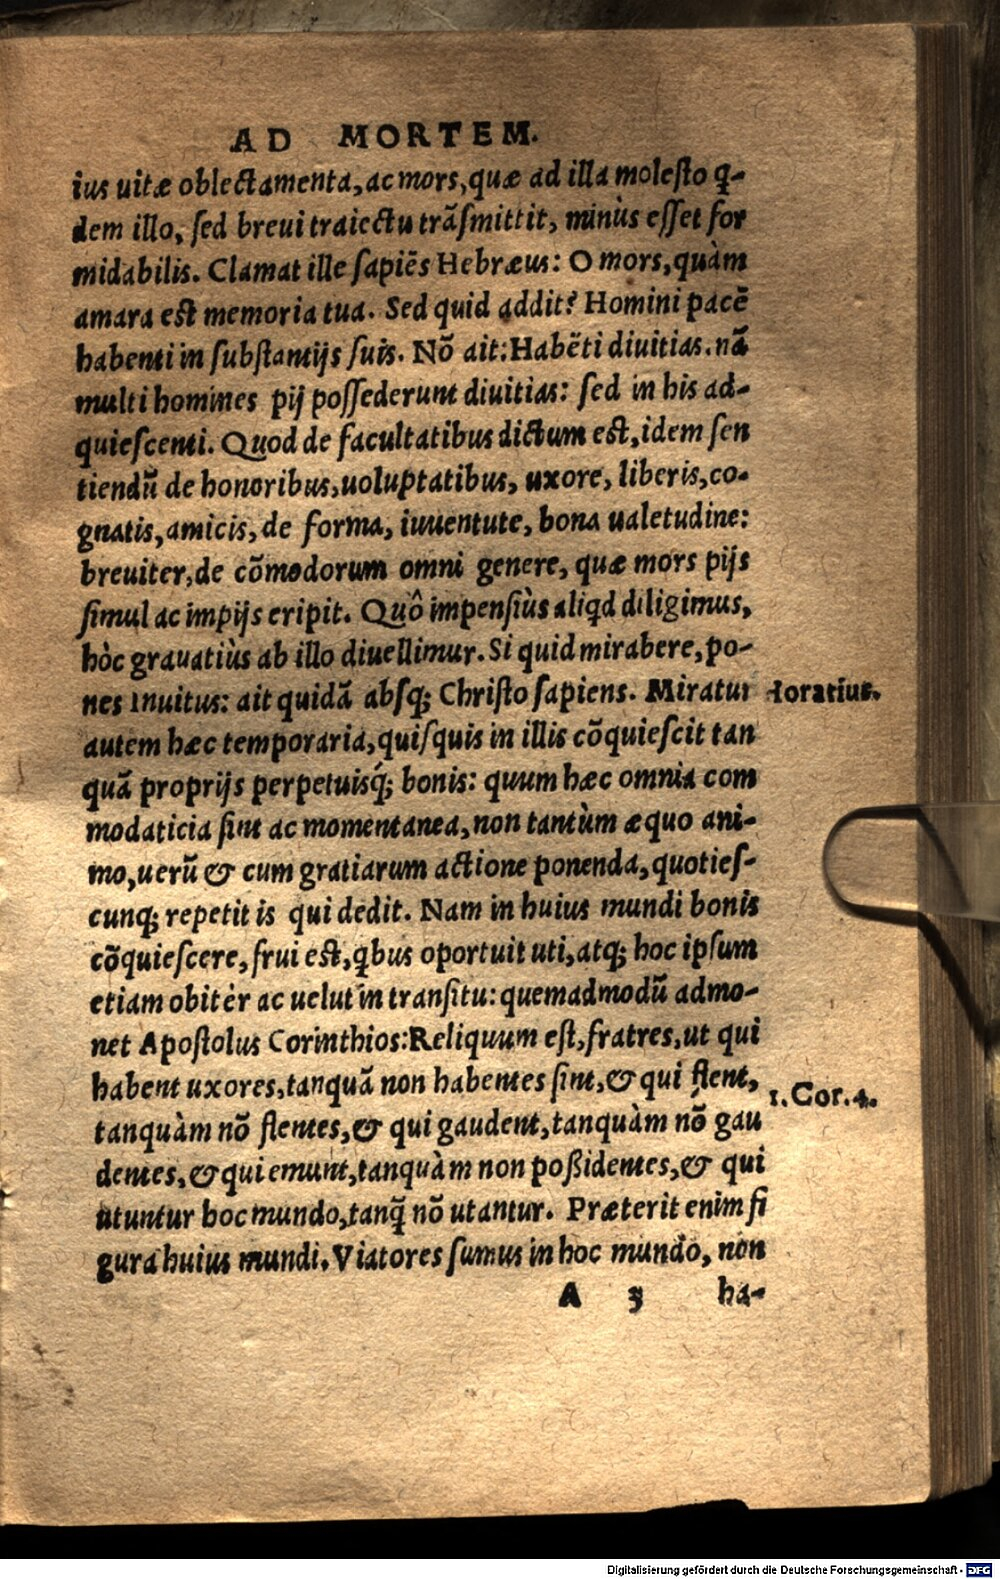 AD MORTEM.
ius uitæ oblectamenta, ac mors, quæ ad illa molesto q̃-
dem illo, sed breui traiectu trãsmittit, minùs esset for
midabilis. Clamat ille sapiẽs Hebræus: O mors, quàm
amara est memoria tua. Sed quid addit? Homini pacẽ
habenti in substantijs suis. Nõ ait: Habẽti diuitias. nã
multi homines pij possederunt diuitias: sed in his ad-
quiescenti. Quod de facultatibus dictum est, idem sen
tiendũ de honoribus, uoluptatibus, uxore, liberis, co-
gnatis, amicis, de forma, iuuentute, bona ualetudine:
breuiter, de cõmodorum omni genere, quæ mors pijs
simul ac impijs eripit. Quô impensiùs aliq̃d diligimus,
hòc grauatiùs ab illo diuellimur. Si quid mirabere, po-
nes Inuitus: ait quidã absq; Christo sapiens. Miratur
Horatius.
autem hæc temporaria, quisquis in illis cõquiescit tan
quã proprijs perpetuisq́; bonis: quum hæc omnia com
modaticia sint ac momentanea, non tantùm æquo ani-
mo, uerũ & cum gratiarum actione ponenda, quoties-
cunq; repetit is qui dedit. Nam in huius mundi bonis
cõquiescere, frui est, q̃bus oportuit uti, atq; hoc ipsum
etiam obiter ac uelut in transitu: quemadmodũ admo-
net Apostolus Corinthios: Reliquum est, fratres, ut qui
habent uxores, tanquã non habentes sint, & qui flent,
1. Cor. 4.
tanquàm nõ flentes, & qui gaudent, tanquàm nõ gau
dentes, & qui emunt, tanquàm non poßidentes, & qui
utuntur hoc mundo, tanq̃ nõ utantur. Præterit enim fi
gura huius mundi. Viatores sumus in hoc mundo, non
A 3 ha-
Digitalisierung gefördert durch die Deutsche Forschungsgemeinschaft - DFG